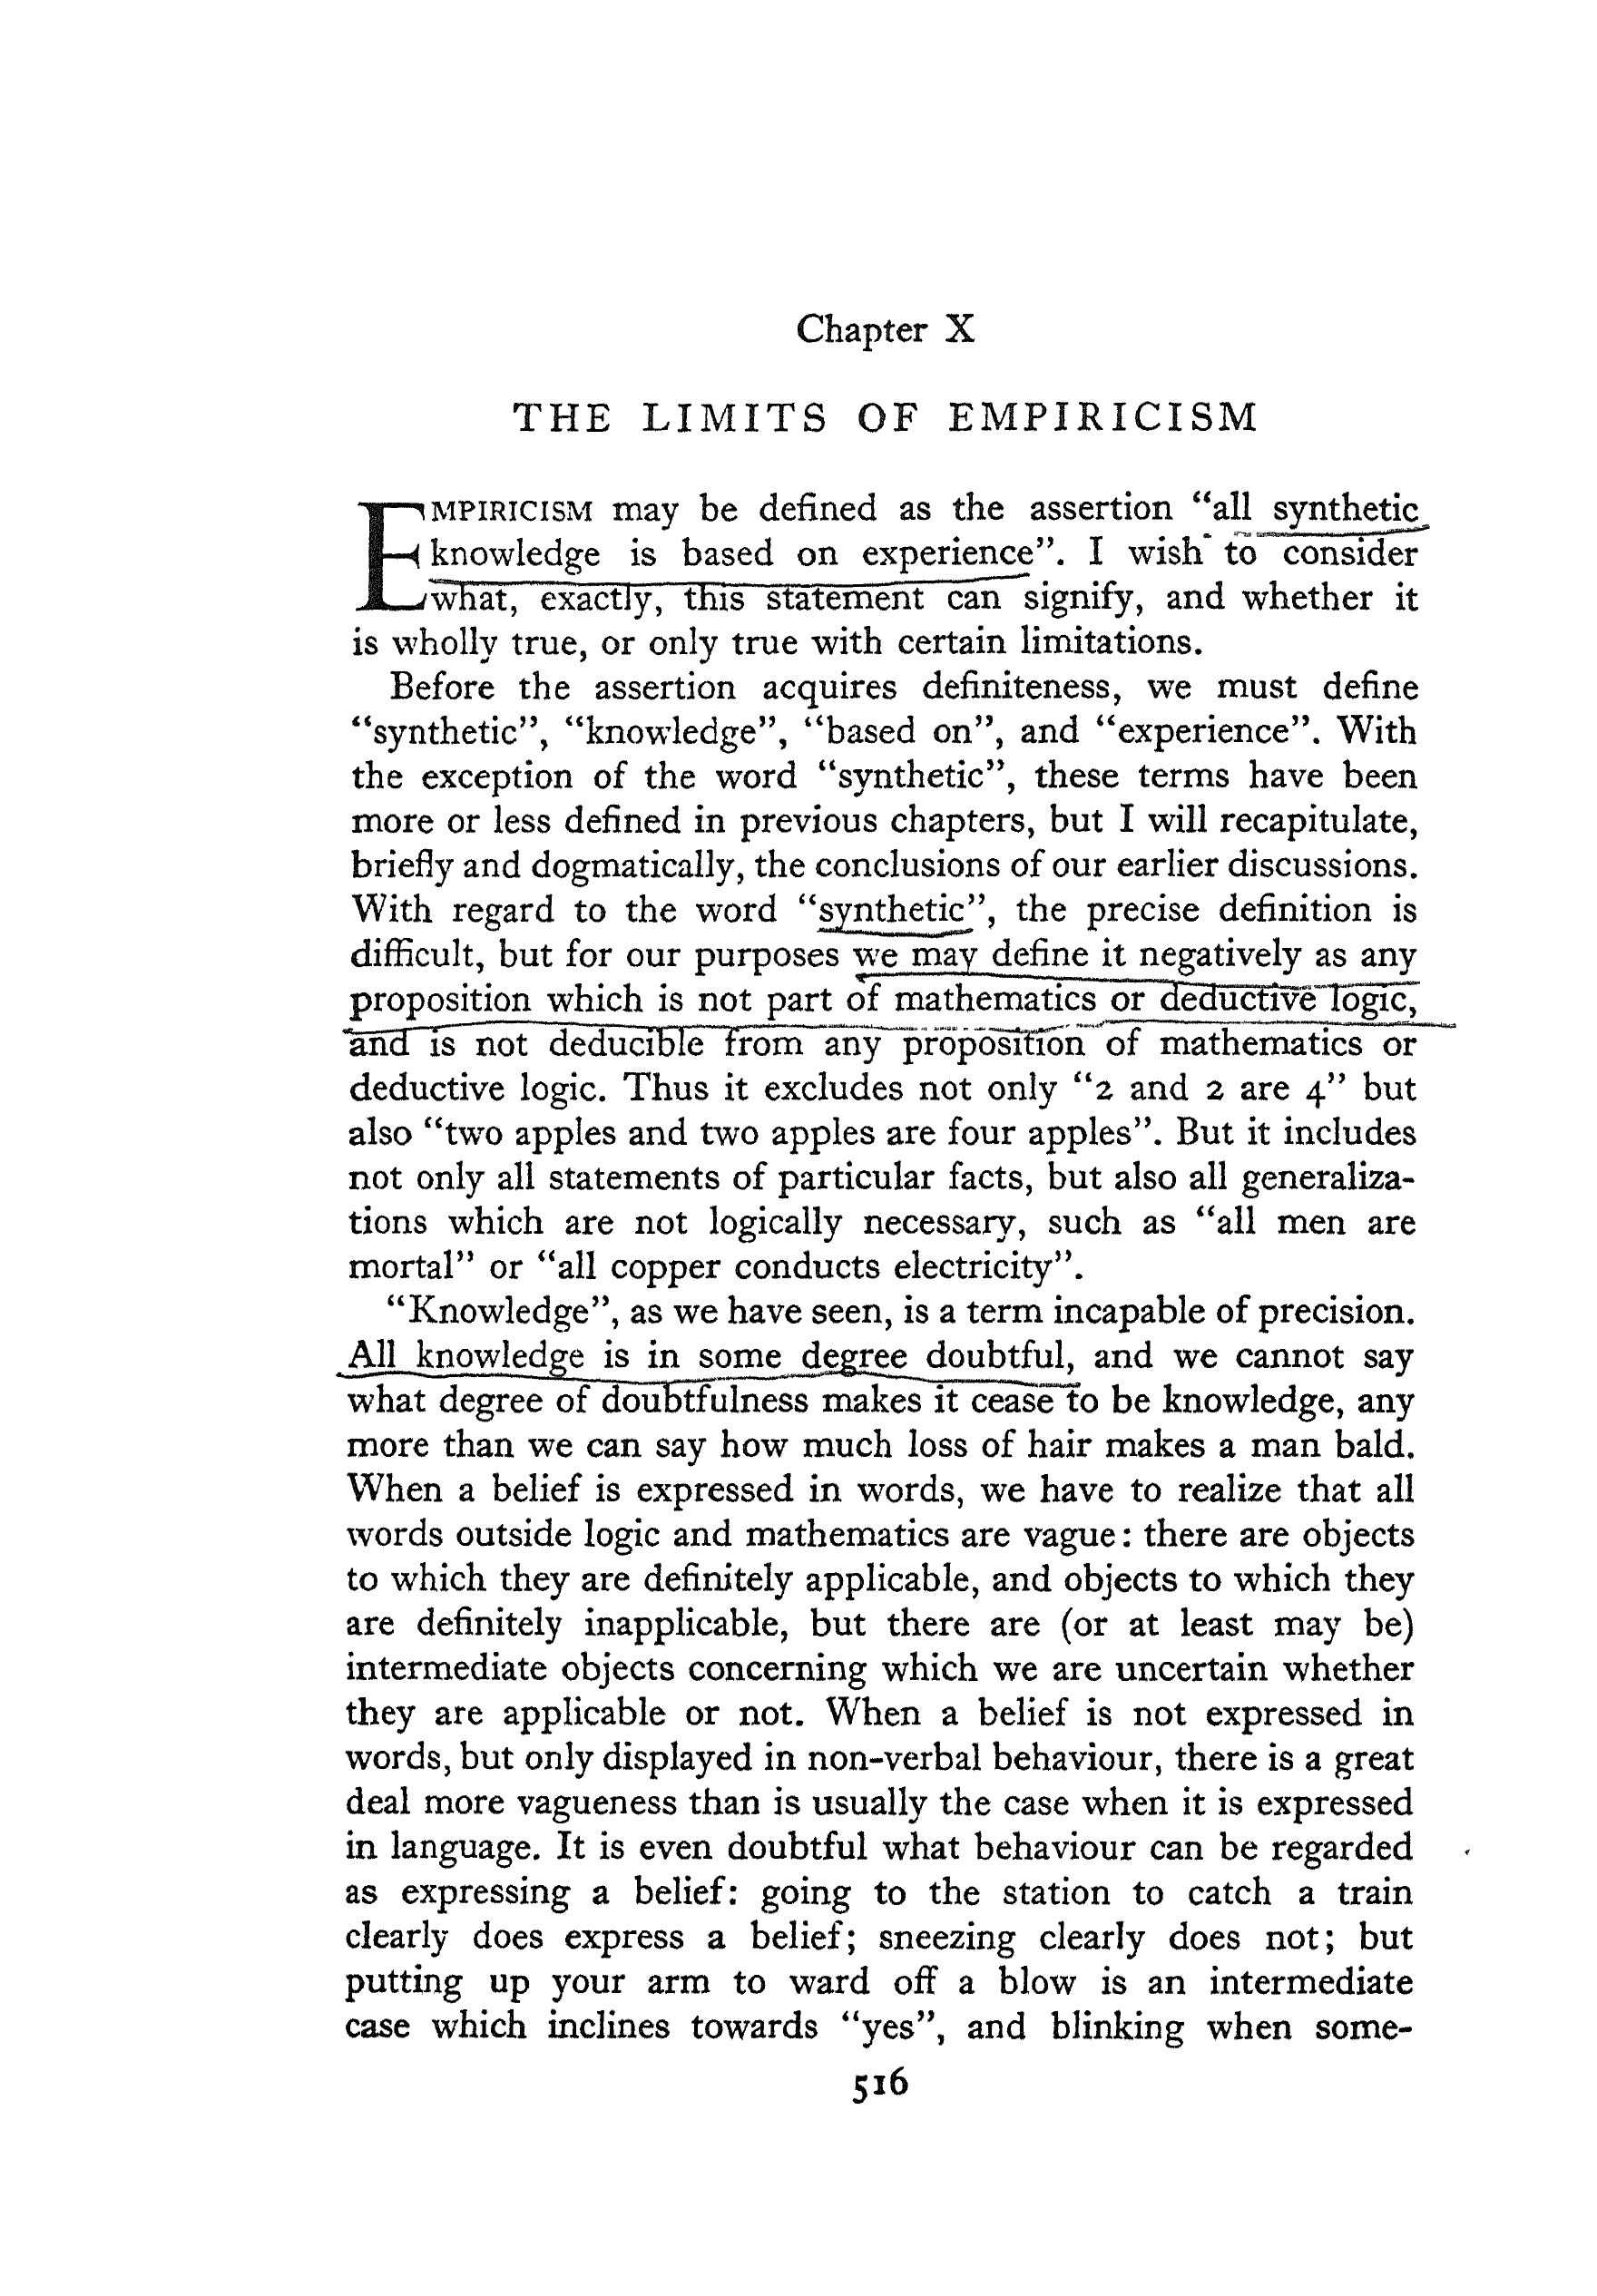 Chapter X
THE LIMITS OF EMPIRICISM
EMPIRICISM may be defined as the assertion “all synthetic
knowledge is based on experience”. I wish to consider
what, exactly, this statement can signify, and whether it
is wholly true, or only true with certain limitations.
Before the assertion acquires definiteness, we must define
“synthetic”, “knowledge”, “based on”, and “experience”. With
the exception of the word “synthetic”, these terms have been
more or less defined in previous chapters, but I will recapitulate,
briefly and dogmatically, the conclusions of our earlier discussions.
With regard to the word “synthetic”, the precise definition is
difficult, but for our purposes we may define it negatively as any
proposition which is not part of mathematics or deductive logic,
and is not deducible from any proposition of mathematics or
deductive logic. Thus it excludes not only “2 and 2 are 4” but
also “two apples and two apples are four apples”. But it includes
not only all statements of particular facts, but also all generaliza-
tions which are not logically necessary, such as “all men are
mortal” or “all copper conducts electricity”.
“Knowledge”, as we have seen, is a term incapable of precision.
All knowledge is in some degree doubtful, and we cannot say
what degree of doubtfulness makes it cease to be knowledge, any
more than we can say how much loss of hair makes a man bald.
When a belief is expressed in words, we have to realize that all
words outside logic and mathematics are vague: there are objects
to which they are definitely applicable, and objects to which they
are definitely inapplicable, but there are (or at least may be)
intermediate objects concerning which we are uncertain whether
they are applicable or not. When a belief is not expressed in
words, but only displayed in non-verbal behaviour, there is a great
deal more vagueness than is usually the case when it is expressed
in language. It is even doubtful what behaviour can be regarded
as expressing a belief: going to the station to catch a train
clearly does express a belief; sneezing clearly does not; but
putting up your arm to ward off a blow is an intermediate
case which inclines towards “yes”, and blinking when some-
516